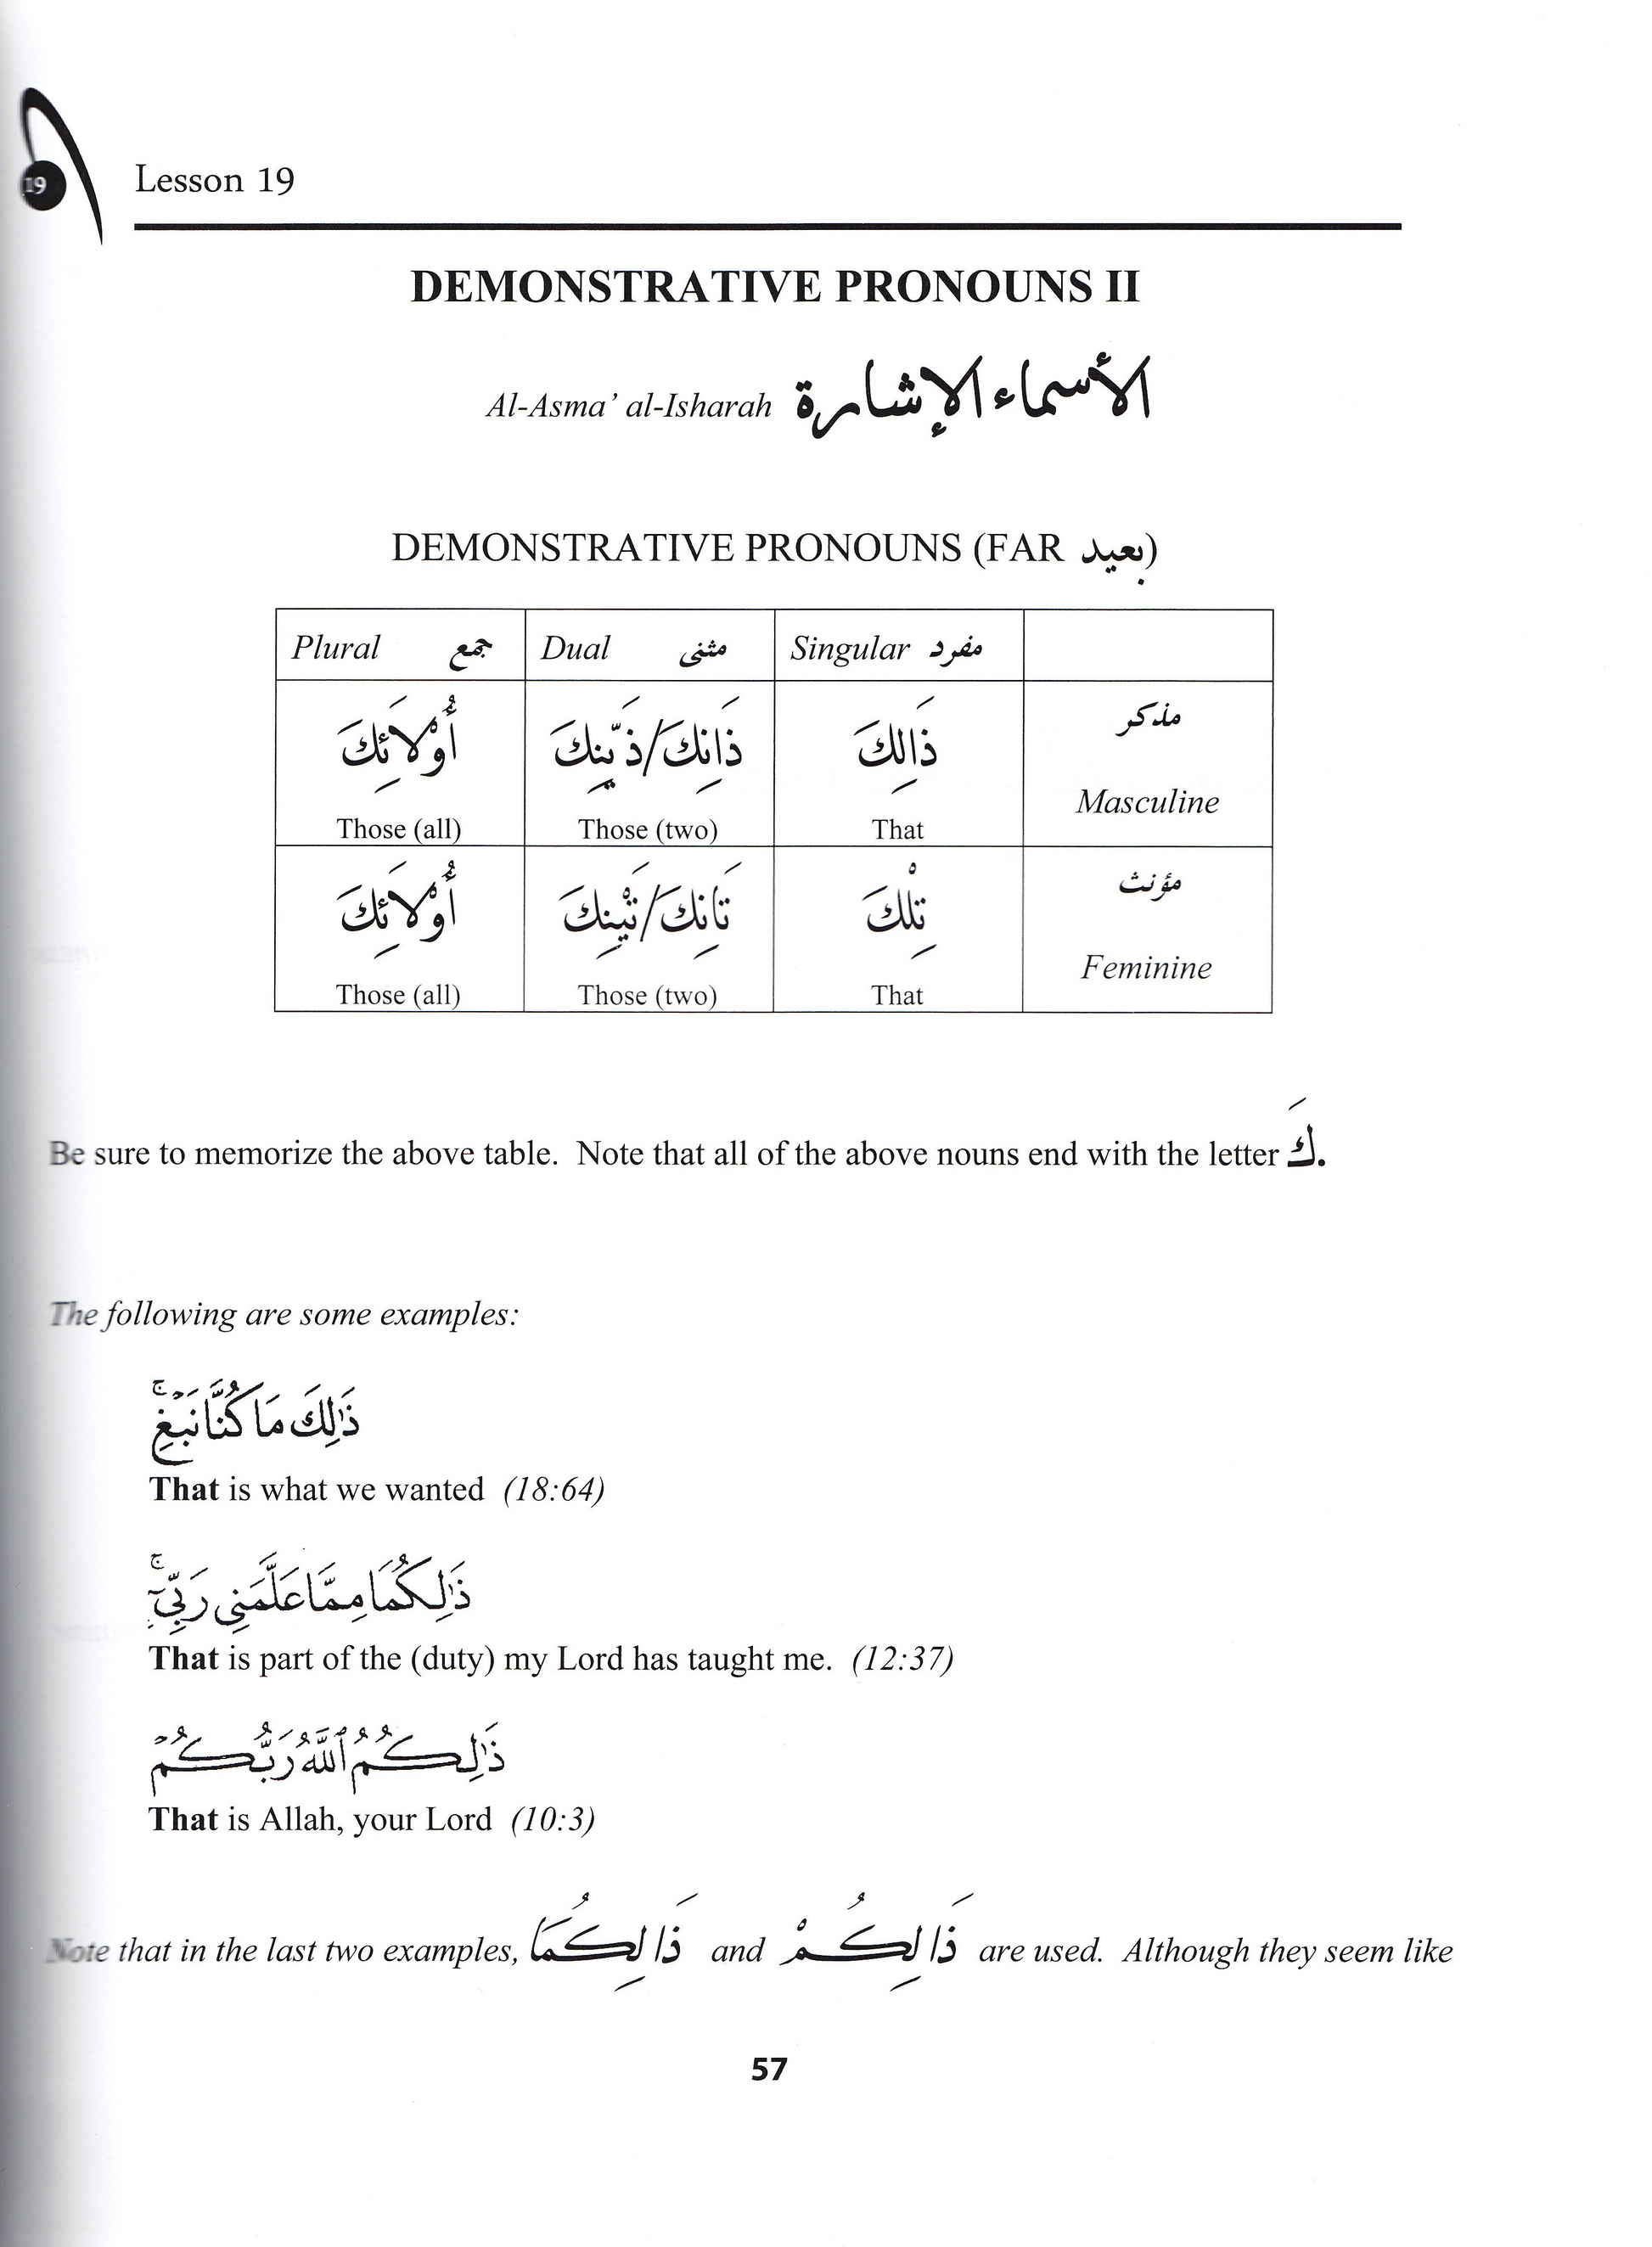 19
Lesson 19
DEMONSTRATIVE PRONOUNS II
Al-Asma’ al-Isharah الأسماء الإشارة
DEMONSTRATIVE PRONOUNS (FAR بعيد)
Plural جمع Dual مثنى Singular مفرد
أُوْلاَئِكَ ذَانِكَ/ذَيّنِكَ ذَالِكَ مذكر
Those (all) Those (two) That Masculine
أُوْلاَئِكَ تَانِكَ/تَيْنِكَ تِلْكَ مؤنث
Those (all) Those (two) That Feminine
Be sure to memorize the above table. Note that all of the above nouns end with the letter كَ.
The following are some examples:
ذَٰلِكَ مَا كُنَّا نَبْغِ ۚ
That is what we wanted (18:64)
ذَٰلِكُمَا مِمَّا عَلَّمَنِى رَبِّىٓ ۚ
That is part of the (duty) my Lord has taught me. (12:37)
ذَٰلِكُمُ ٱللَّهُ رَبُّكُمْ
That is Allah, your Lord (10:3)
Note that in the last two examples, ذَالِكُمَا and ذَالِكُمْ are used. Although they seem like
57